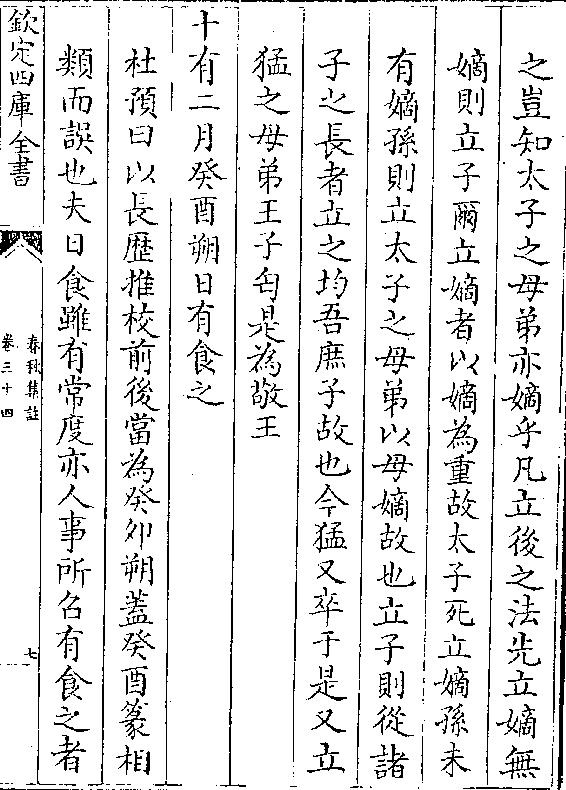 之豈知太子之母弟亦嫡乎凡立後之法先立嫡無
嫡則立子爾立嫡者以嫡為重故太子死立嫡孫未
有嫡孫則立太子之母弟以母嫡故也立子則從諸
子之長者立之均吾庶子故也今猛又卒于是又立
猛之母弟王子匄是為敬王
十有二月癸酉朔日有食之
杜預曰以長歷推校前後當為癸夘朔蓋癸酉篆相
類而誤也夫日食雖有常度亦人事所召有食之者
欽定四庫全書
春秋集註
卷三十四
七